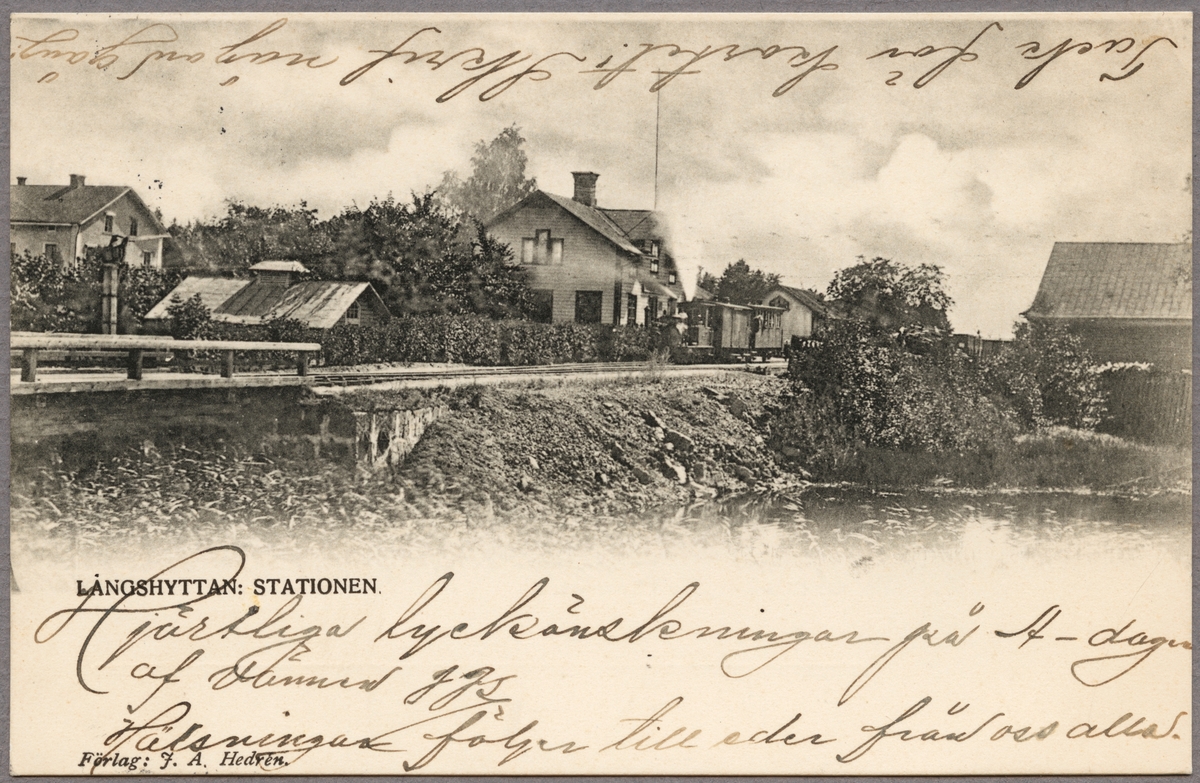 Tack för kortet! Skrif någon gång!
LÅNGSHYTTAN: STATIONEN.
Hjärtliga lyckönskningar på A-dagen
af vännen
Hälsningar följer till eder från oss alla.
Förlag: J. A. Hedrén.